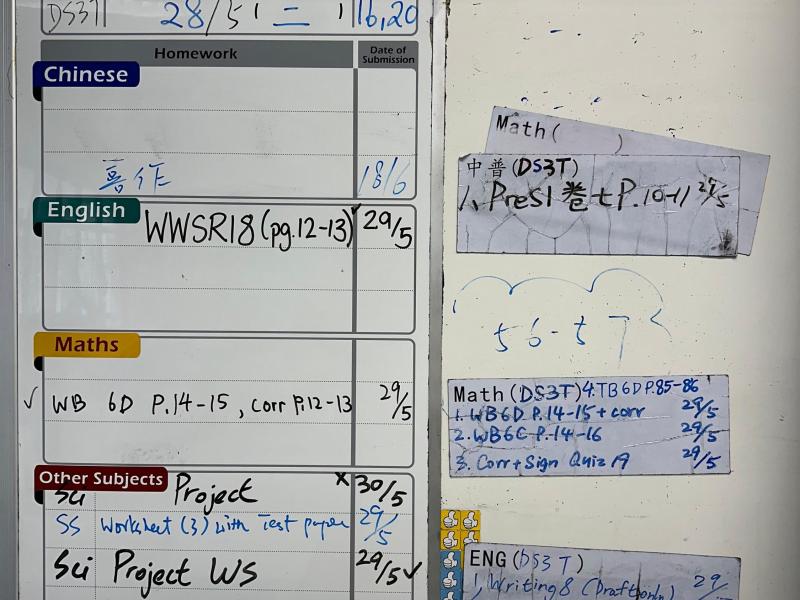 DS3T 28/5 ( 二 ) 16,20
Homework Date of Submission
Chinese
喜作 18/6
English
WWSR18 (pg.12-13) 29/5
Maths
✓ WB 6D P.14-15, corr P.12-13 29/5
Other Subjects
Sci Project x 30/5
SS Worksheet (3) with Test paper 29/5
Sci Project WS 29/5 ✓
Math ( )
中普(DS3T)
1、PreS1 卷七 P.10-11 29/5
Math (DS3T) 4.TB6D P.85-86
1. WB6D P.14-15 + corr 29/5
2. WB6C P.14-16 29/5
3. Corr + Sign Quiz 19 29/5
ENG (DS3T)
1, Writing 8 (Draft only) 29/